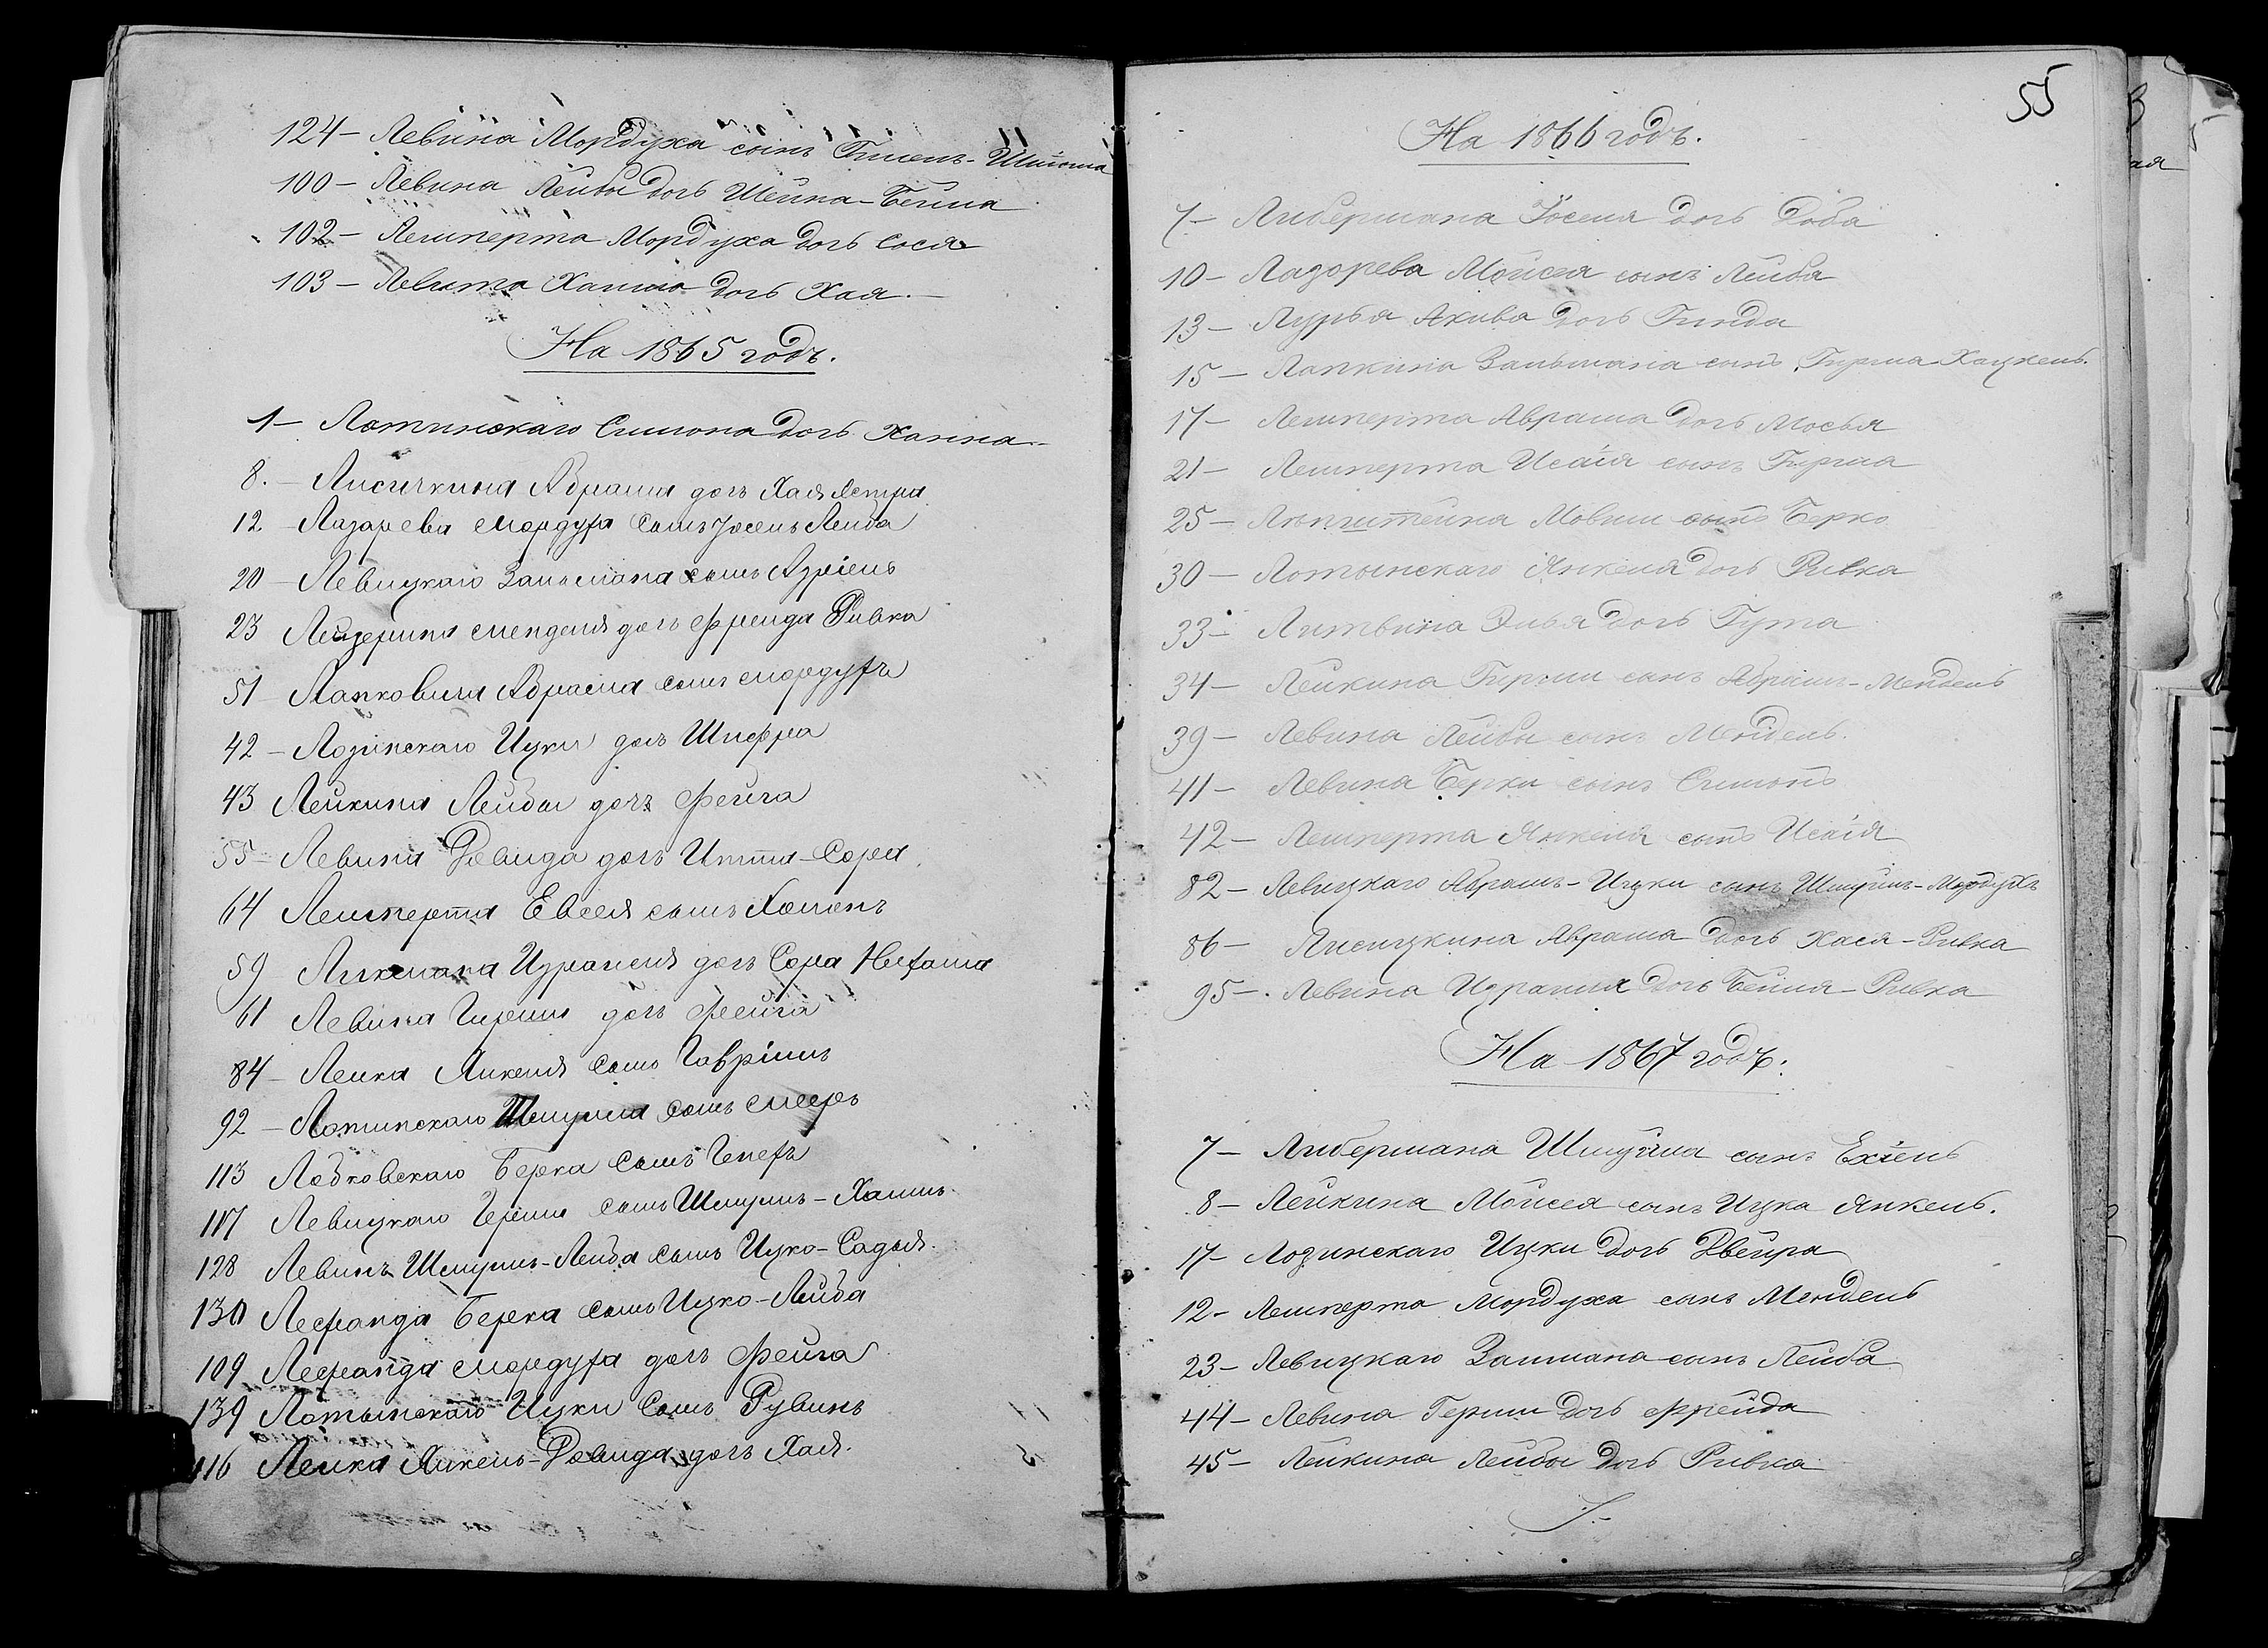 124 – Левина Мордуха сынъ Гилель-Шлиома
100 – Левина Лейбы дочь Шейна-Бейла
102 – Лемперта Мордуха дочь Сося
103 – Левита Хаима дочь Хая.
На 1865 годъ.
1 – Лотинскаго Симона дочь Ханна
8. – Лисичкина Абрама дочь Хая Естра
12 – Лазарева Мордуха сынъ Іосель Лейба
20 – Левицкаго Залмана сынъ Азріель
23 Менделя дочь Фрейда Ривка
51 – Лапковича Абрама сынъ Мордухъ
42 – Лозинскаго Ицки дочь Шифра
43 Лейкина Лейбы дочь Фейга
55 – Левина Довида дочь Итта-Сора
64 Лемперта Евсея сынъ Хононъ
59 Ликмана Израиля дочь Сора Нехама
61 Левина Гирши дочь Фейга
84 – Лейка Янкеля сынъ Гавріилъ
92 – Лотинскаго Шмуила сынъ Мееръ
113 Лобковскаго Берка сынъ Генехъ
117 Левицкаго Герши сынъ Шмуилъ-Хаимъ.
128 Левинъ Шмуилъ-Лейба сынъ Ицко-Садыя.
130 Лефанда Берка сынъ Ицко-Лейба
109 Лефанда Мордуха дочь Фейга
139 Лотынскаго Ицки сынъ Рувинъ
116 Лейка Янкель-Довида дочь Хая.
55
На 1866 годъ.
7 – Либермана Іоселя дочь Доба
10 – Лазорева Мойсея сынъ Лейба
13 – Лурья Акива дочь Гинда
15 – Лапкина Зальмана сынъ Гирша-Хацкель.
17 – Лемперта Абрама дочь Мосья
21 – Лемперта Исаія сынъ Гирша
25 – Мовши сынъ Берко
30 – Лотынскаго Янкеля дочь Ривка
33 – Литвина Элья дочь Гута
34 – Лейкина Гирши сынъ Абрамъ-Мендель
39 – Левина Лейбы сынъ Мендель.
41 – Левина Берки сынъ Симонъ
42 – Лемперта Янкеля сынъ Исаія
82 – Левицкаго Абрамъ-Ицки сынъ Шмуилъ-Мордухъ
86 – Лисицкина Абрама дочь Хася-Ривка
95 – Левина Израиля дочь Бейля-Ривка
На 1867 годъ.
7 – Либермана Шмуйла сынъ Ехіель
8 – Лейкина Мойсея сынъ Ицка Янкель.
17 – Лозинскаго Ицки дочь Двейра
12 – Лемперта Мордуха сынъ Мендель
23 – Левицкаго Залмана сынъ Лейба
44 – Левина Герши дочь Фрейда
45 – Лейкина Лейбы дочь Ривка